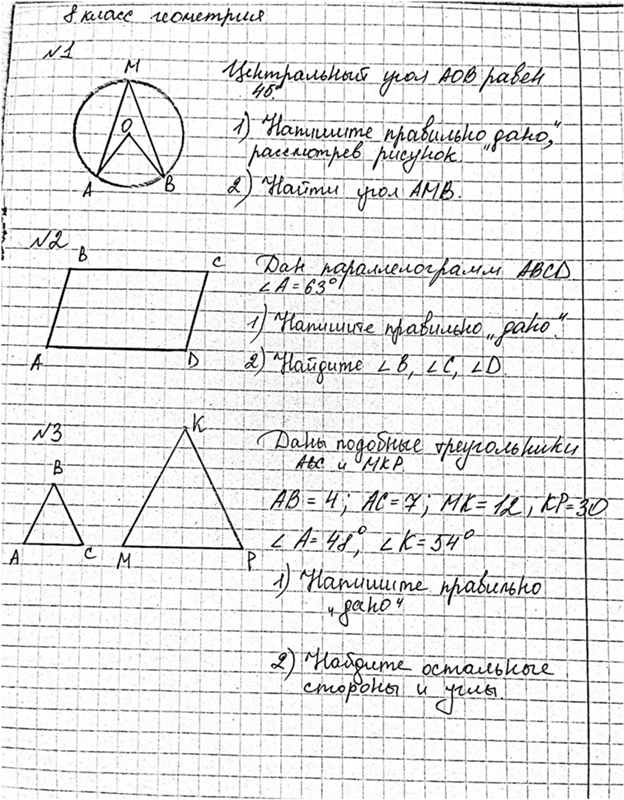 8 класс геометрия
№1
M
O
A
B
Центральный угол AOB равен
46°
1) Напишите правильно „дано“,
рассмотрев рисунок.
2) Найти угол AMB.
№2
B
C
A
D
Дан параллелограмм ABCD
∠A = 63°
1) Напишите правильно „дано“.
2) Найдите ∠B, ∠C, ∠D.
№3
K
B
A
C
M
P
Даны подобные треугольники
ABC и MKP.
AB = 4; AC = 7; MK = 12, KP = 30
∠A = 48°, ∠K = 54°
1) Напишите правильно
„дано“
2) Найдите остальные
стороны и углы.